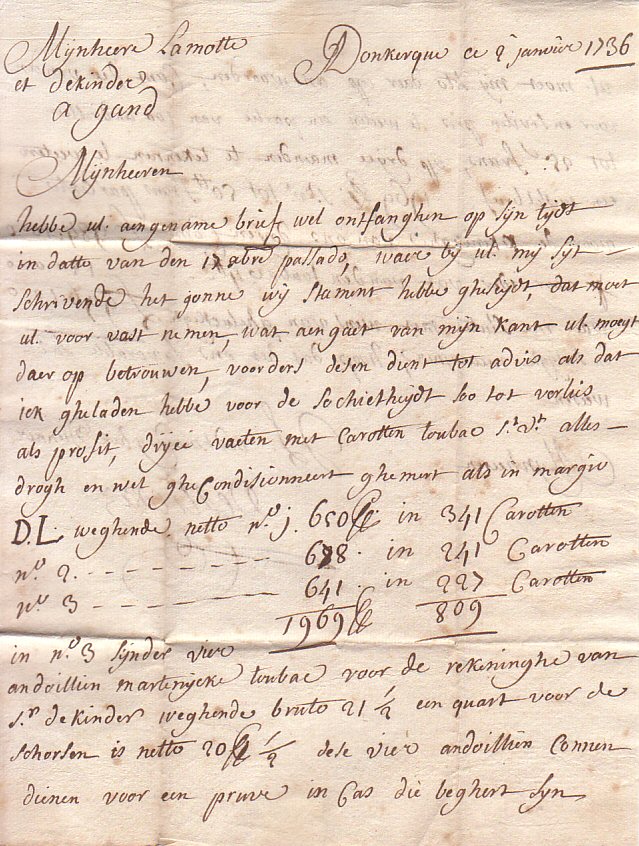 Mijnheere Lamotte
et dekinder
a gand
Donkerque ce 2 janvier 1736
Mijnheeren
hebbe ul. aengename brief wel ontfanghen op sijn tijdt
in datte van den 17 xbre passado, waer bij ul. mij sijt
schrivende het gonne wij stament hebbe gheseijdt, dat moet
ul. voor vast nemen, wat aengaet van mijn kant ul. moegt
daer op betrouwen, voorders desen dient tot advis als dat
ick gheladen hebbe voor de sochietheijdt soo tot verlies
als profit, drijee vaeten met Carotten toubac st. vt. alles
drogh en wel gheConditionneert ghemert als in margie
D.L. weghende netto no. 1. 650 lb in 341 Carotten
no. 2. 678. in 241 Carotten
no. 3 641. in 227 Carotten
1969 lb 809
in no. 3 sijnder vier
andoillien martenijcke toubac voor de rekeninghe van
sr. dekinder weghende bruto 21 1/2 een quart voor de
schorsen is netto 20 lb 1/2 dese vier andoillien connen
dienen voor een pruve in Cas die beghert sijn